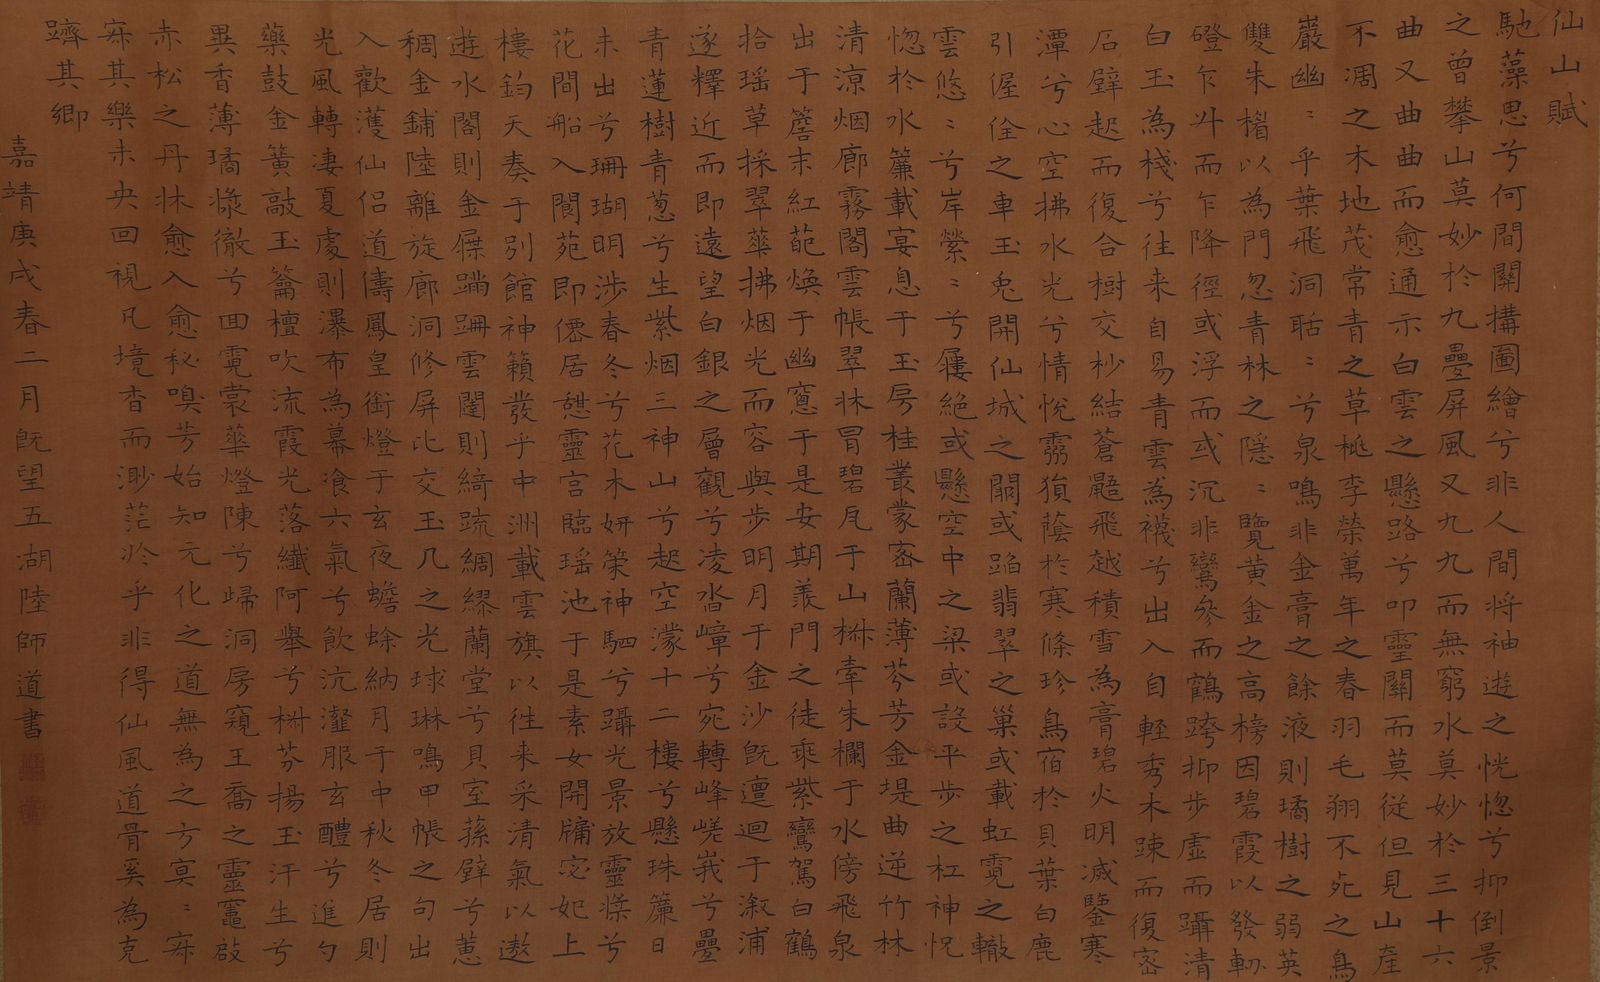 仙山賦
馳藻思兮何間關構圖繪兮非人間將神遊之恍惚兮抑倒景
之曾攀山莫妙於九疊屏風又九九而無窮水莫妙於三十六
曲又曲曲而愈通示白雲之懸路兮叩靈關而莫從但見山產
不凋之木地茂常青之草桃李榮萬年之春羽毛翔不死之鳥
巖幽〻乎葉飛洞聒〻兮泉鳴非金膏之餘液則璚樹之弱英
雙朱楮以為門忽青林之隱〻覽黄金之高榜因碧霞以發軔
磴乍升而乍降徑或浮而或沉非鸞驂而鶴跨抑步虛而躡清
白玉為棧兮往来自易青雲為襪兮出入自輕秀木踈而復密
石壁起而復合樹交杪結蒼飛越積雪為膏碧火明滅鑒寒
潭兮心空拂水光兮情悅蔭於寒條珍鳥宿於貝葉白鹿
引偓佺之車玉兔開仙城之闕或蹈翡翠之巢或載虹霓之轍
雲悠〻兮岸縈〻兮屨絕或懸空中之梁或設平步之杠神怳
惚於水簾載宴息于玉房桂叢蒙密蘭薄芬芳金堤曲逆竹林
清涼烟廊霧閣雲帳翠牀冐碧瓦于山椒牽朱欄于水傍飛泉
出于簷末紅葩煥于幽窻于是安期羨門之徒乘紫鸞駕白鶴
拾瑶草採翠蕐拂烟光而容與步明月于金沙旣邅迴于溆浦
遂釋近而即遠望白銀之層觀兮凌沓嶂兮宛轉峰嵯峩兮疊
青蓮樹青葱兮生紫烟三神山兮起空濛十二樓兮懸珠簾日
未出兮珊瑚明涉春冬兮花木妍策神駟兮躡光景放靈𣓉兮
花間船入閬苑即僊居憇靈宫臨瑶池于是素女開牖宓妃上
樓鈞天奏于別館神籟發乎中洲載雲旗以徃来采清氣以遨
遊水閣則金屧蹣跚雲闥則綺疏綢繆蘭堂兮貝室蓀壁兮蕙
稠金鋪陸離旋廊洞修屏比交玉几之光球琳鳴甲帳之句出
入歡濩仙侣道儔鳳皇銜燈于玄夜蟾蜍納月于中秋冬居則
光風轉凄夏處則瀑布為幕飡六氣兮飲沆瀣服玄醴兮進勺
藥鼓金簧敲玉籥檀吹流霞光落纖阿舉兮椒芬揚玉汗生兮
異香薄璚漿徹兮囬霓裳蕐燈陳兮歸洞房窺王喬之靈竈啟
赤松之丹牀愈入愈秘嗅芳始知元化之道無為之方寞〻寐
寐其樂未央回視凡境杳而渺茫於乎非得仙風道骨奚為克
躋其鄉
嘉靖庚戌春二月旣望五湖陸師道書